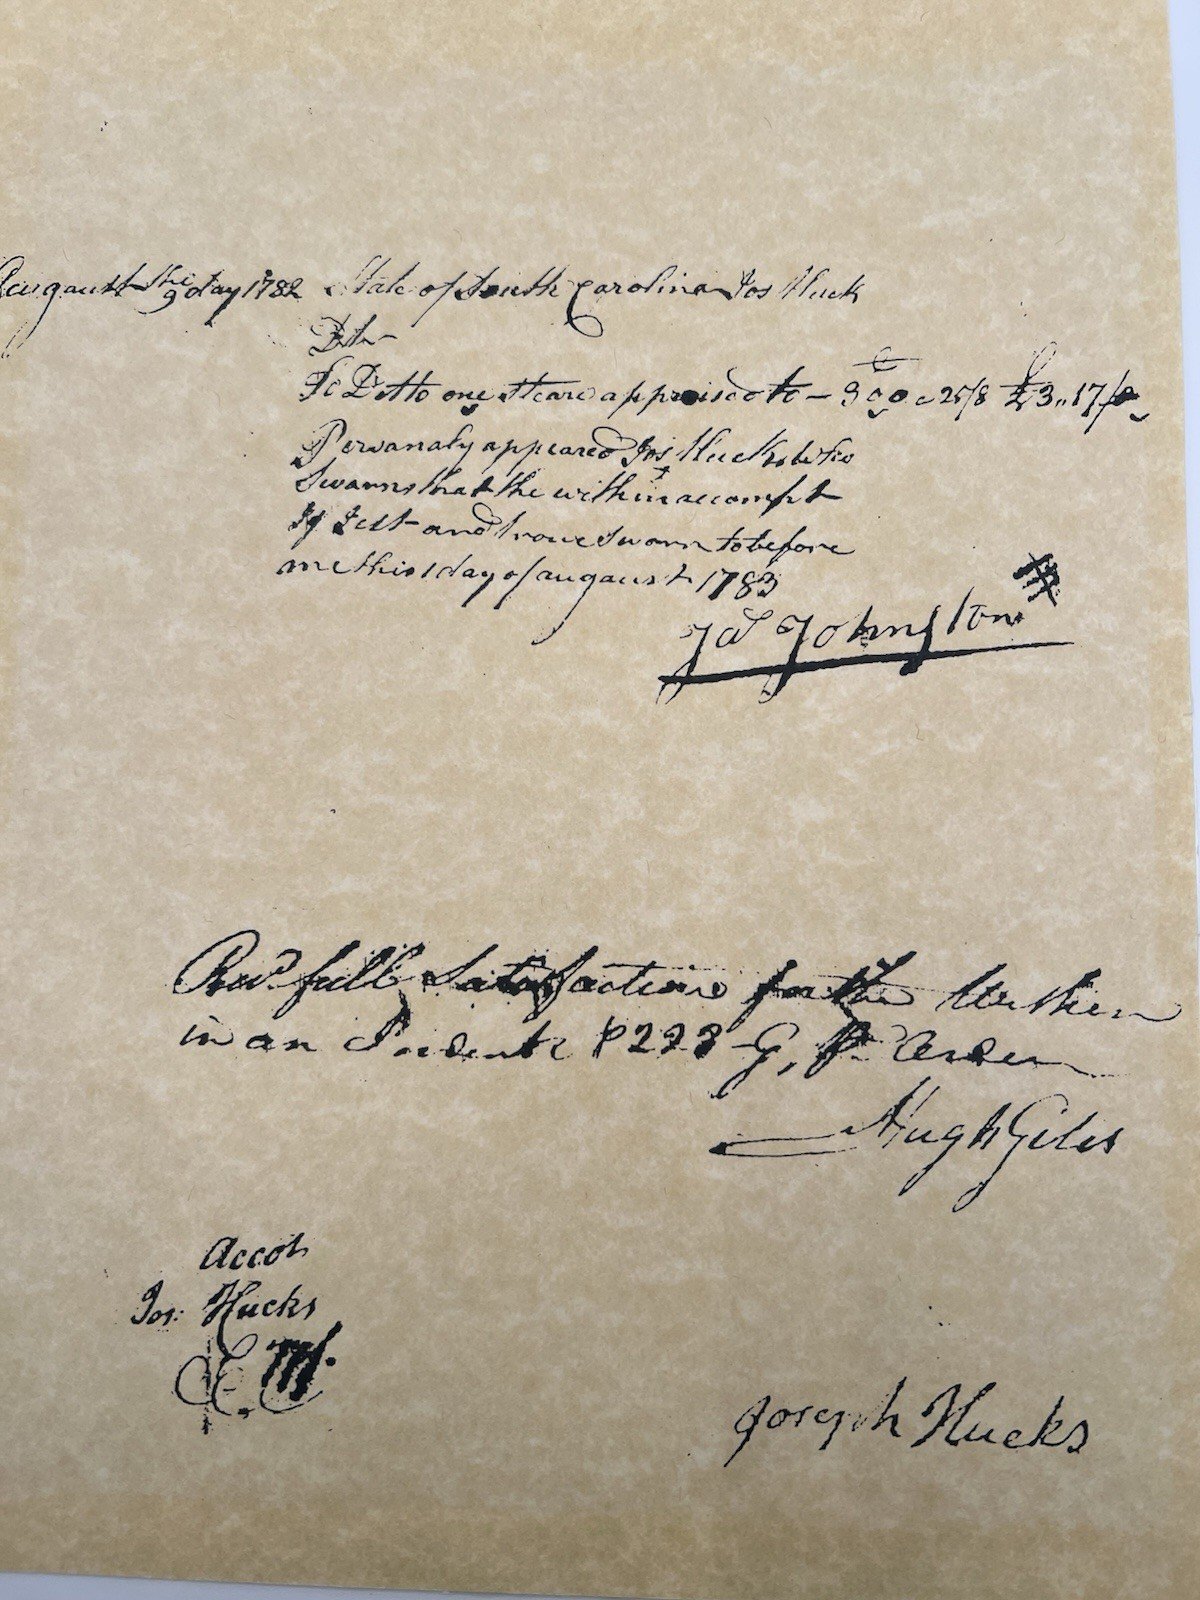 augaust the 9 day 1782 State of South Carolina Jos Huck
Dtr
To Ditto one steare appraised to — 300 c 25/8 £3,,17/
Personaly appeared Jos Hucks who
Swarns that the within accompt
If Jest and troue Sworn to before
me this 1 day of augaust 1783
Ja Johnston
Recd. full Satisfaction for the Within
in an Indent P 223 G, Pr Order
Hugh Giles
Accot
Jos: Hucks
E. M.
Joseph Hucks